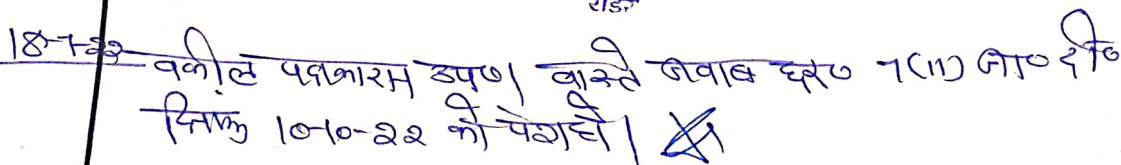 18-7-22 वकील पक्षकारान उप०। वास्ते जवाब दर० 7(11) जा० दी०
दिनांक 10-10-22 को पेश हो।